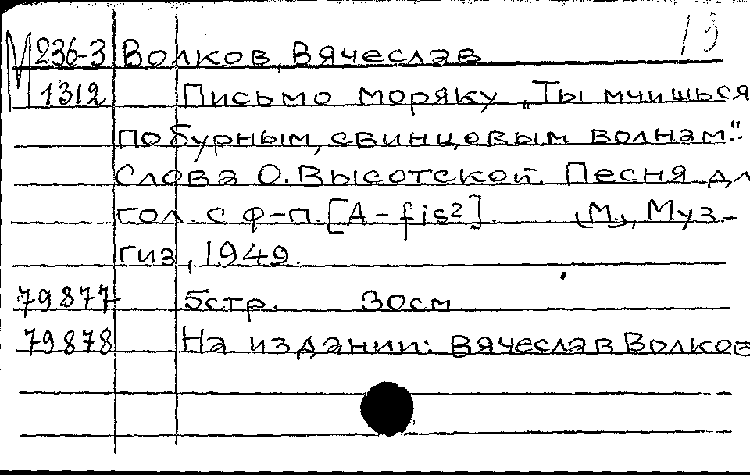 13
236-3 Волков, Вячеслав
1312 Письмо моряку „Ты мчишься
по бурным, свинцовым волнам".
Слова О. Высотской. Песня дл
гол. с ф-п. [A - fis²]. (М), Муз-
гиз, 1949.
79877 5стр. 30см
79878 На издании: Вячеслав Волков